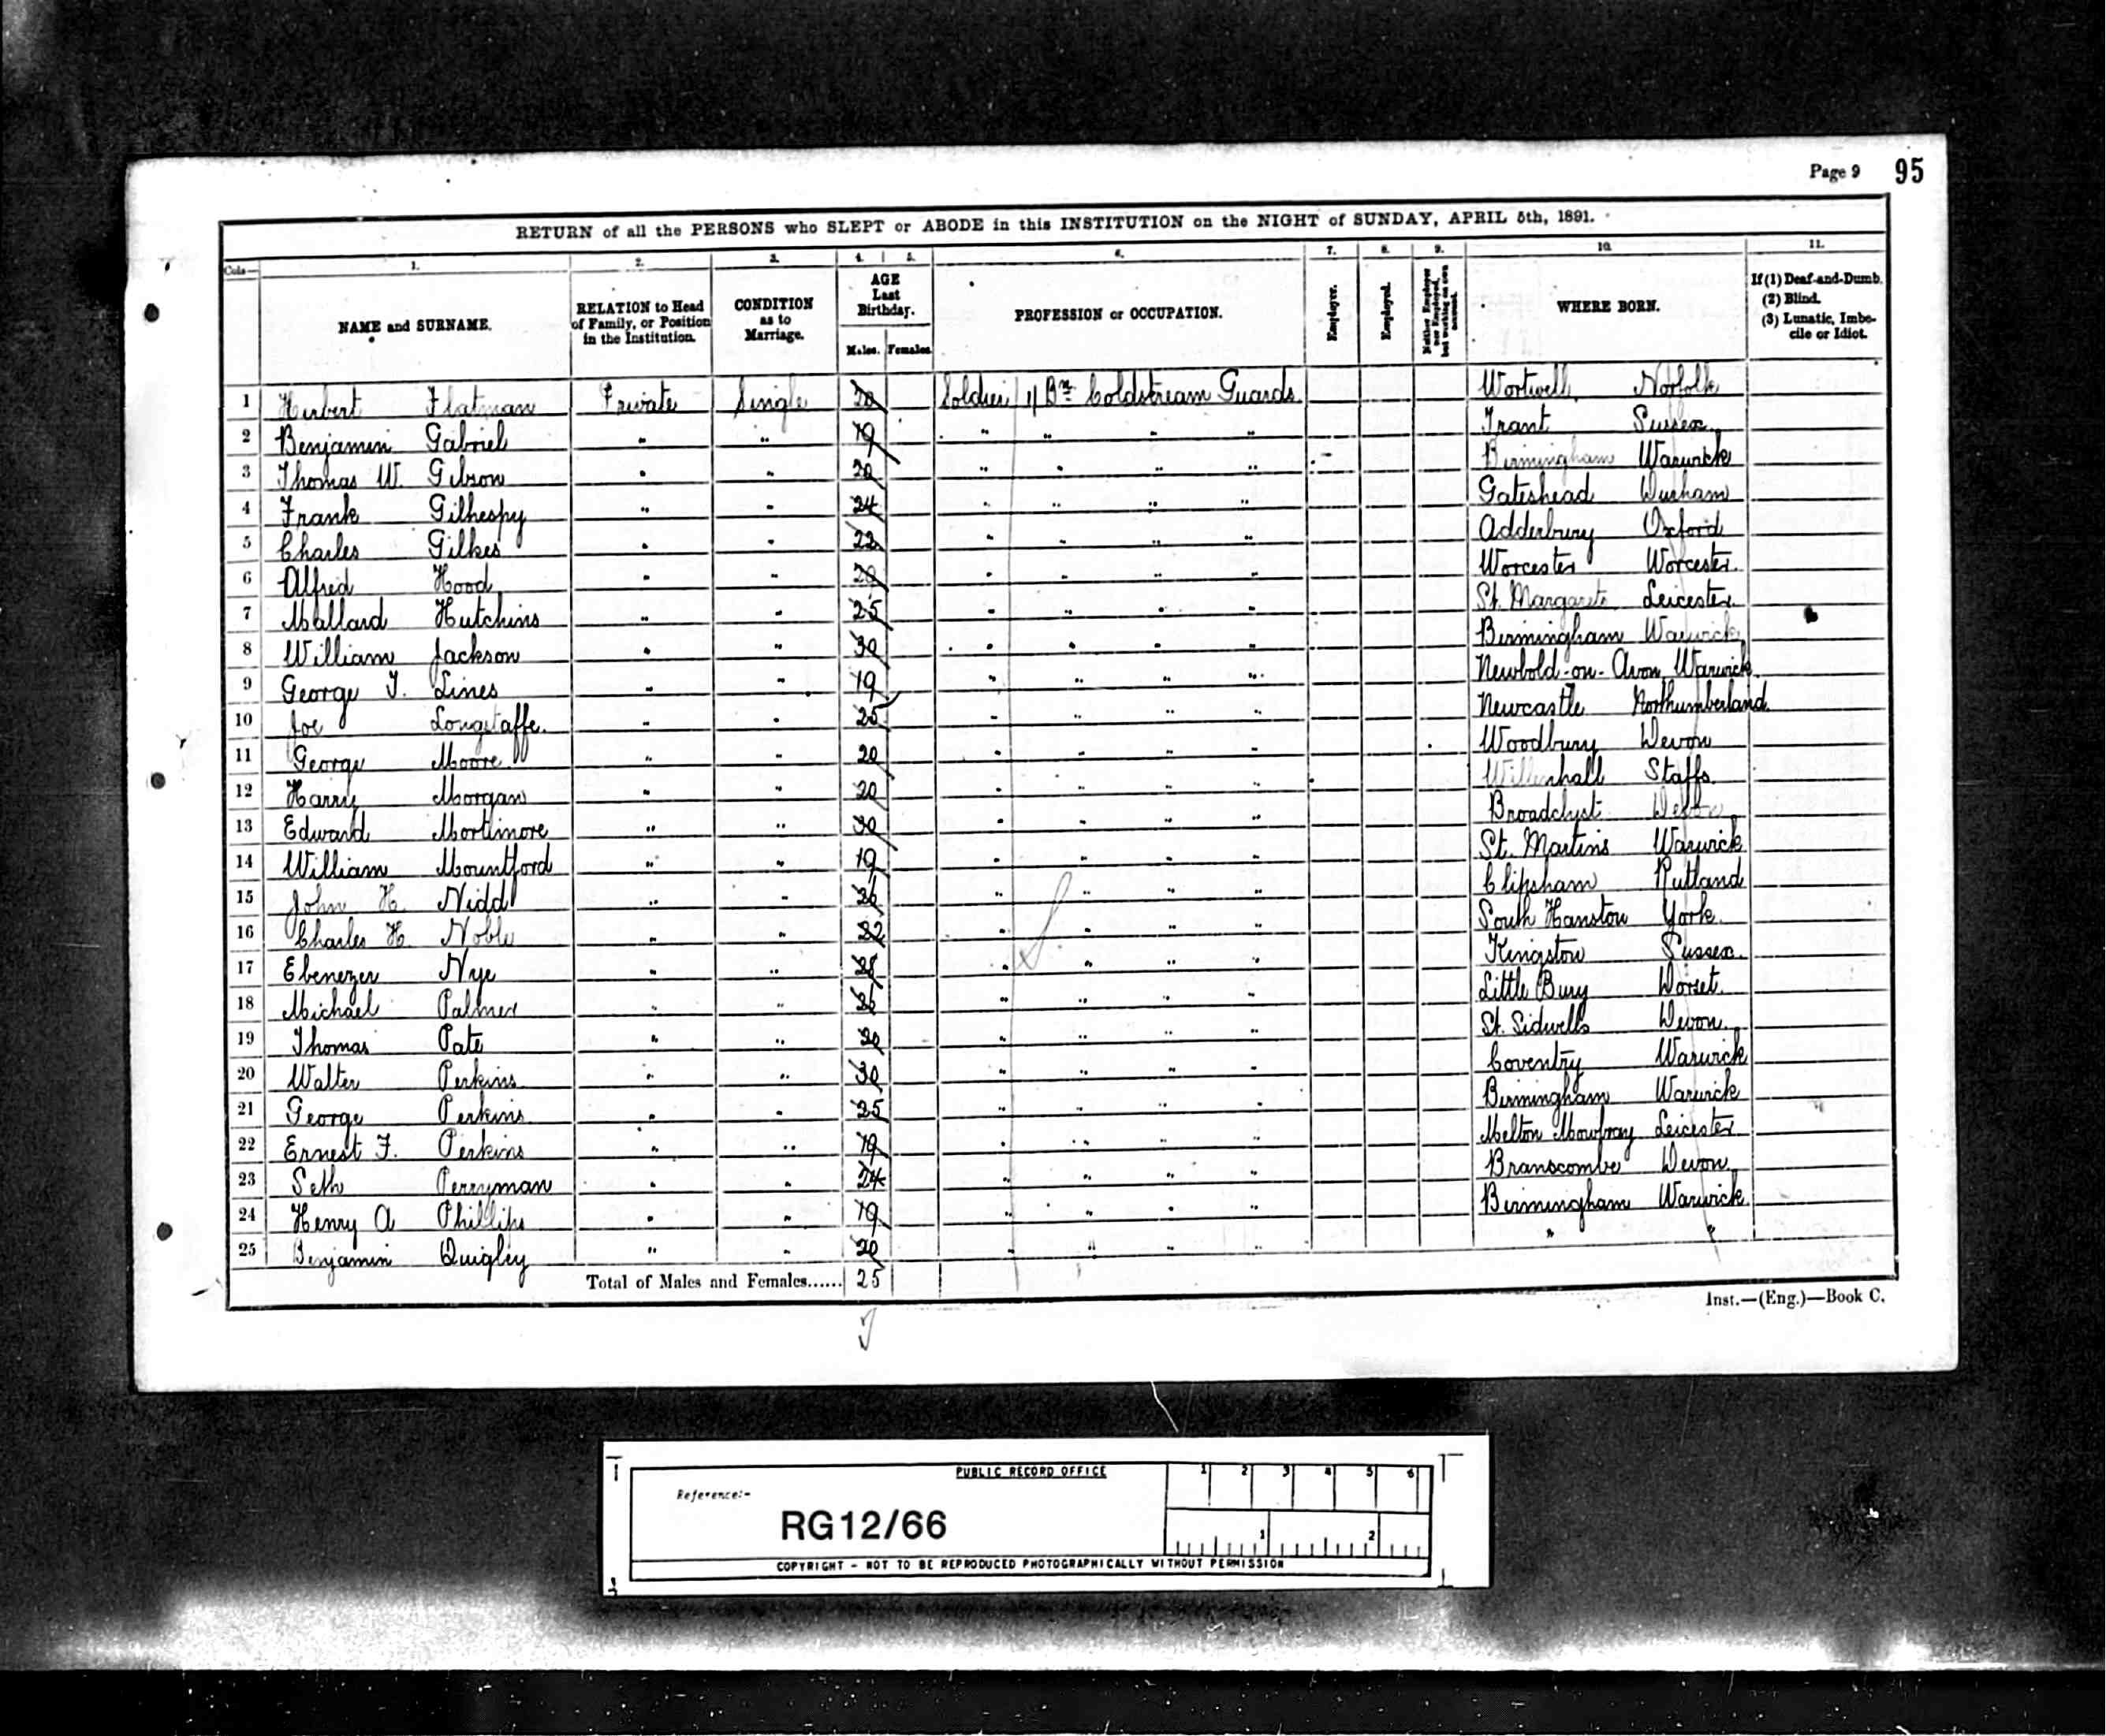 Page 9 95
RETURN of all the PERSONS who SLEPT or ABODE in this INSTITUTION on the NIGHT of SUNDAY, APRIL 5th, 1891.
Cols— 1. 2. 3. 4. 5. 6. 7. 8. 9. 10. 11.
NAME and SURNAME. RELATION to Head of Family, or Position in the Institution. CONDITION as to Marriage. AGE Last Birthday. Males. Females. PROFESSION or OCCUPATION. Employer. Employed. Neither Employer nor Employed, but working on own account. WHERE BORN. If (1) Deaf-and-Dumb. (2) Blind. (3) Lunatic, Imbecile or Idiot.
1 Herbert Flatman Private Single 20 Soldier 1/ Bn Coldstream Guards Wortwell, Norfolk
2 Benjamin Gabriel " " 19 " " " " Frant Sussex
3 Thomas W. Gibson " " 20 " " " " Birmingham Warwick
4 Frank Gilhespy " " 24 " " " " Gateshead Durham
5 Charles Gilkes " " 22 " " " " Adderbury Oxford
6 Alfred Hood " " 20 " " " " Worcester Worcester.
7 Mallard Hutchins " " 25 " " " " St. Margarets Leicester
8 William Jackson " " 30 " " " " Birmingham Warwick
9 George T. Lines " " 19 " " " " Newbold-on-Avon Warwick
10 Joe Longstaffe. " " 25 " " " " Newcastle Northumberland
11 George Moore " " 20 " " " " Woodbury Devon
12 Harry Morgan " " 20 " " " " Willenhall Staffs
13 Edward Mortimore " " 30 " " " " Broadclyst Devon
14 William Mountford " " 19 " " " " St. Martins Warwick
15 John H. Nidd " " 26 " " " " Clipsham Rutland
16 Charles H. Noble " " 22 " " " " South York.
17 Ebenezer Nye " " 28 " " " " Kingston Sussex.
18 Michael Palmer " " 26 " " " " Little Bury Dorset.
19 Thomas Pate " " 20 " " " " St. Sidwells Devon
20 Walter Perkins " " 30 " " " " Coventry Warwick
21 George Perkins " " 25 " " " " Birmingham Warwick
22 Ernest F. Perkins " " 19 " " " " Melton Mowbray Leicester
23 Seth Perryman " " 24 " " " " Branscombe Devon
24 Henry A Phillips " " 19 " " " " Birmingham Warwick
25 Benjamin Quigley " " 20 " " " " " "
Total of Males and Females...... 25
Inst.—(Eng.)—Book C.
PUBLIC RECORD OFFICE
1 2 3 4 5 6
Reference:-
RG12/66
1 2
COPYRIGHT - NOT TO BE REPRODUCED PHOTOGRAPHICALLY WITHOUT PERMISSION